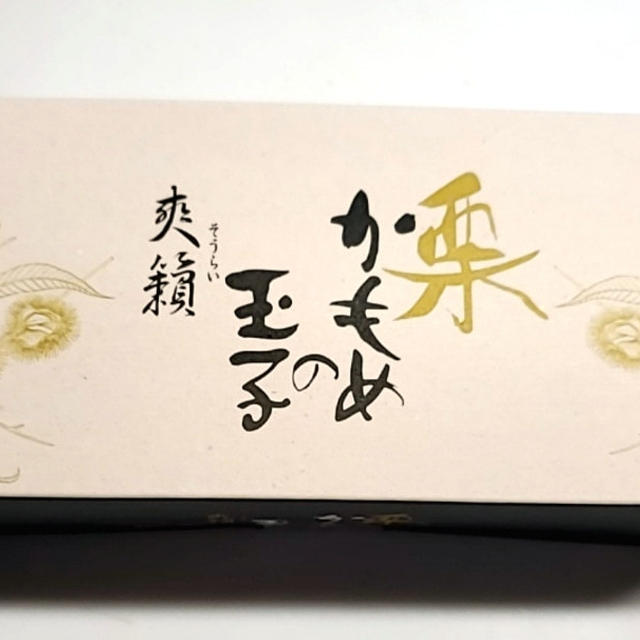 栗
かもめの
玉子
爽籟
そうらい